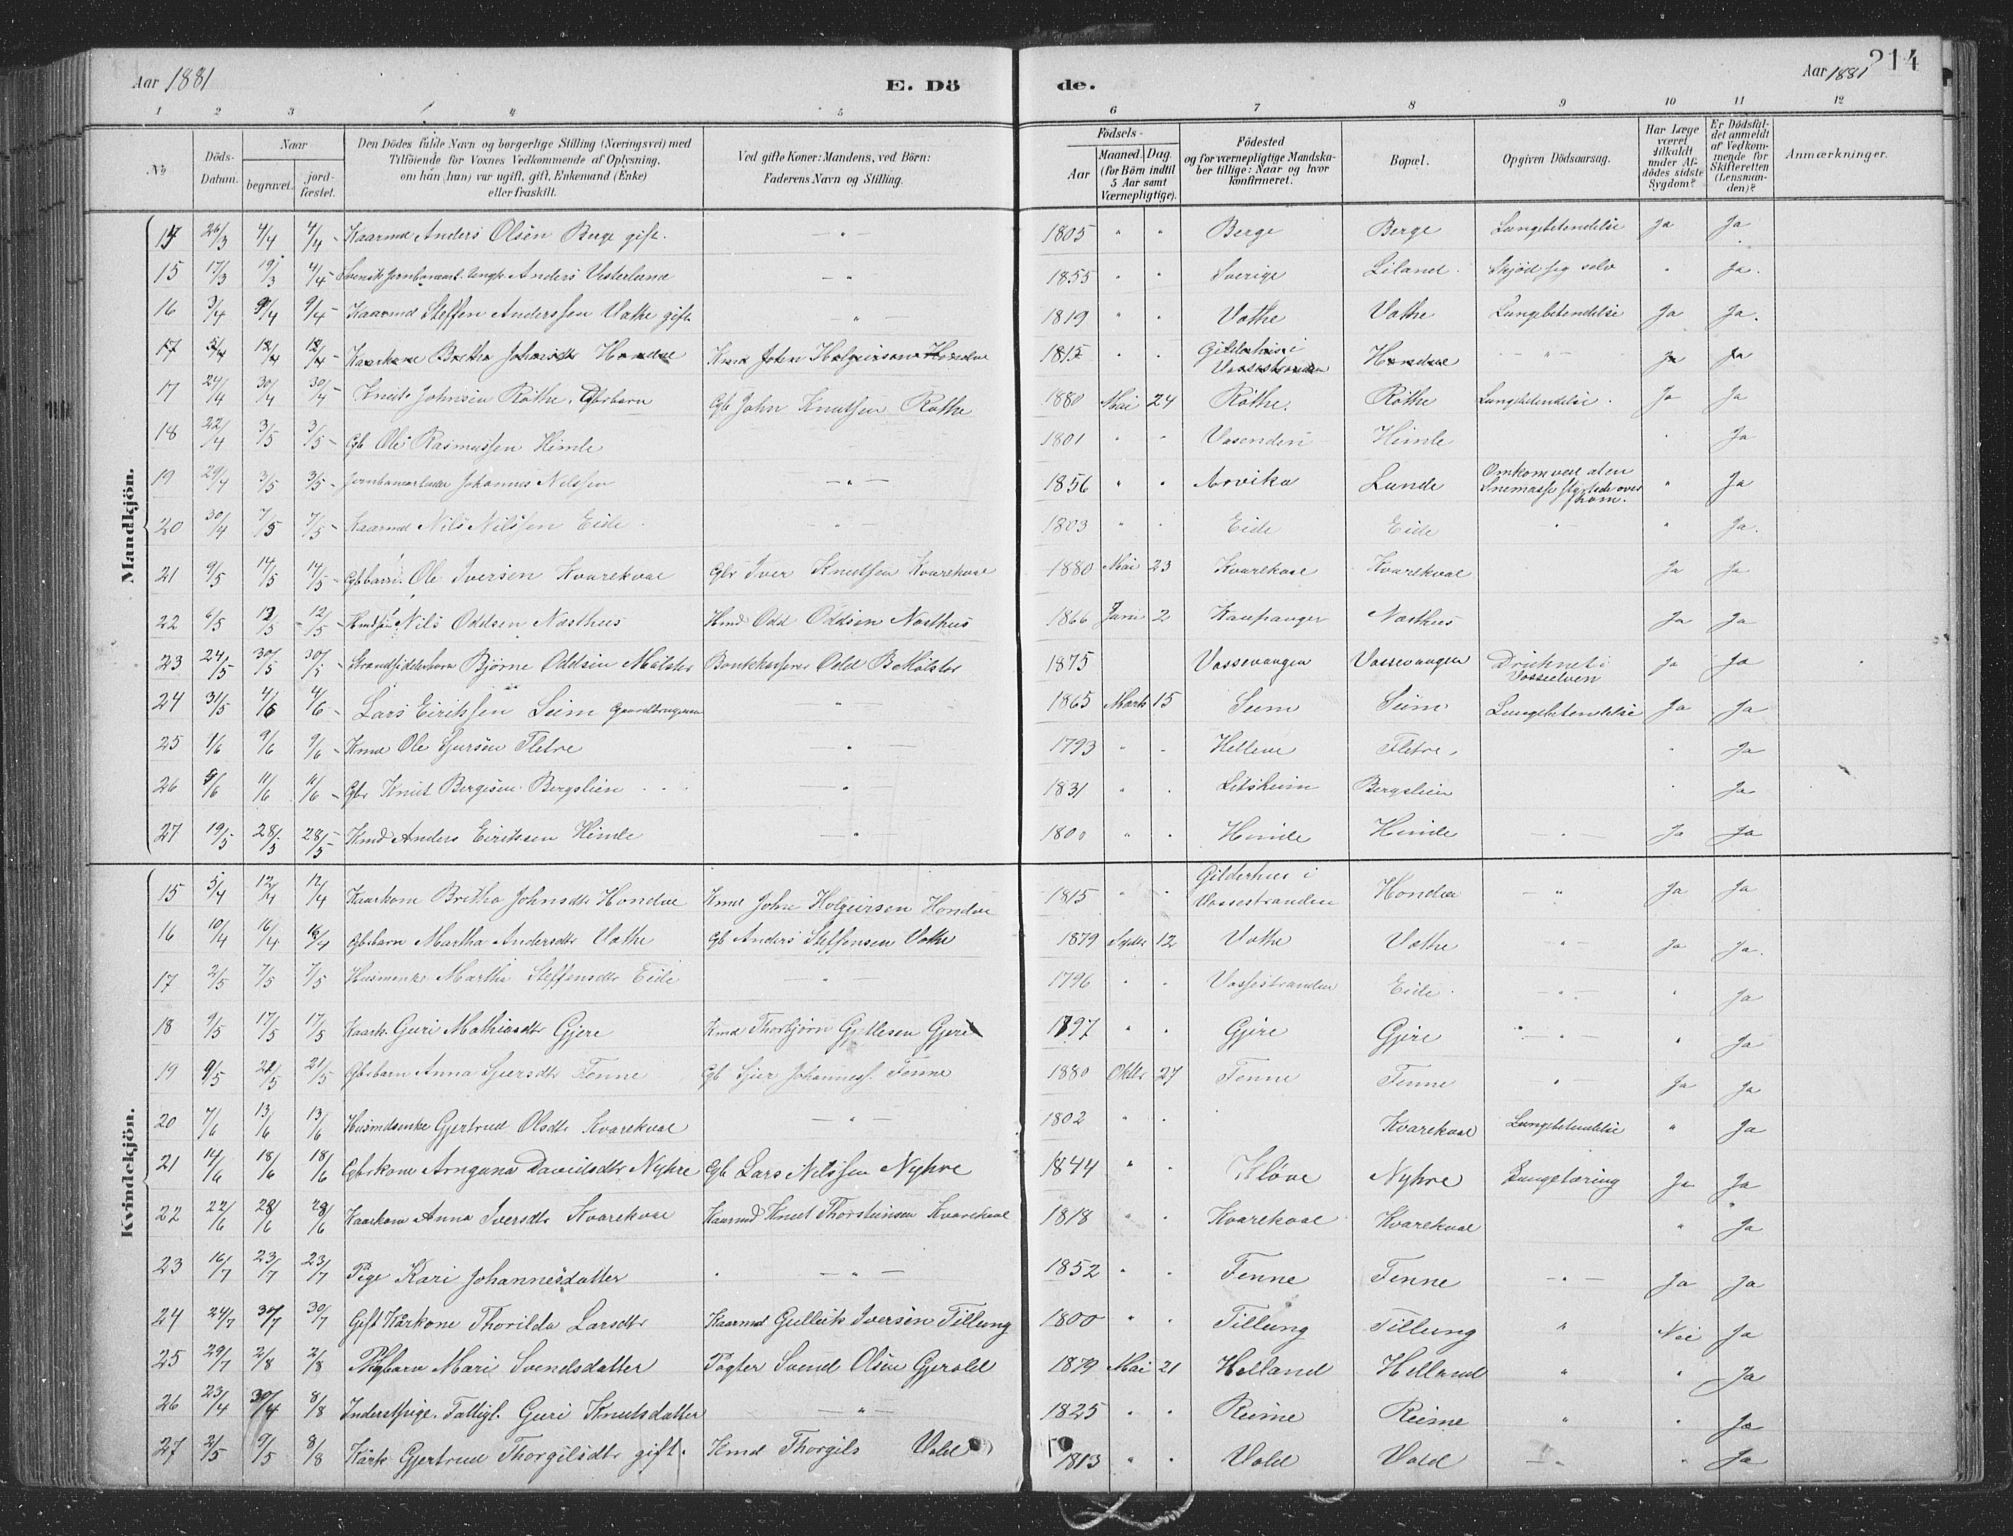 Aar 1881 E. Dö de. Aar 1881 214
1 2 3 4 5 6 7 8 9 10 11 12
No Döds-Datum. Naar begravet. jord-fæstet. Den Dödes fulde Navn og borgerlige Stilling (Næringsvei) med Tilföiende for Voxnes Vedkommende af Oplysning, om han (hun) var ugift, gift, Enkemand (Enke) eller fraskilt. Ved gifte Koner: Mandens, ved Börn: Faderens Navn og Stilling. Födsels- Aar Maaned. Dag. (for Börn indtil 5 Aar samt Værnepligtige). Födested og for værnepligtige Mandska-ber tillige: Naar og hvor konfirmeret. Bopæl. Opgiven Dödsaarsag. Har Læge været tilkaldt under Af-dödes sidste Sygdom? Er Dödsfal-det anmeldt af Vedkom-mende for Skifteretten (Lensman-den)? Anmærkninger.
Mandkjön.
26/3 4/4 4/4 Kaarmd Anders Olsen Berge gift. 1805 Berge Berge Lungebetendelse Ja Ja
15 17/3 19/3 4/4 Anders Vesterlund 1855 Sverige Liland Skjød sig selv Ja.
16 3/4 9/4 9/4 Kaarmd Steffen Anderssen Vathe gift. 1819 Vathe Vathe Lungebetendelse Ja Ja.
17 5/4 12/4 12/4 Kaarkone Bretha Johnsdtr Hondve Kmd John Holgeirsen Hondve 1815 Gilderhus i Vossestranden Hondve Ja Ja
17 24/4 30/4 30/4 Knut Johnsen Röthe, Gbrbarn Gb John Knutsen Röthe 1880 Mai 24 Röthe. Röthe Lungebetendelse. Ja Ja
18 22/4 3/5 3/5 Gb Ole Rasmussen Himle 1801 Vasenden Himle Ja
19 29/4 3/5 3/5 Jernbanearbeider Johannes Nilssen 1856 Arvika Lunde Omkom ved at en Snemasse styrtede over ham. Ja
20 30/4 7/5 7/5 Kaarmd Nils Nilssen Eide 1803 Eide Eide Ja.
21 9/5 17/5 17/5 Gbbarn. Ole Iversen Kvarekval Gbr Iver Knutsen Kvarekval 1880 Mai 23 Kvarekval Kvarekval Ja Ja
22 6/5 12/5 12/5 Nils Oddsen Næsthus Hmd Odd Oddsen Næsthus 1866 Juni 2 Kaupanger Næsthus Ja Ja
23 24/5 30/5 30/5 Strandsidderbarn Björne Oddsen Mölster Odd B Mölster 1875 Vossevangen Vossevangen Druknet i Vosseelven Ja Ja
24 31/5 4/6 4/6 Lars Eiriksen Seim Gaardbrugersøn 1865 Marts 15 Seim Seim Lungebetendelse Ja Ja
25 1/6 9/6 9/6 Kmd Ole Sjursen Fletre 1793 Hellene Fletre. Ja
26 5/6 11/6 11/6 Gbr Knut Bergesen Bergslien 1831 Litsheim Bergslien Ja
27 19/5 28/5 28/5 Kmd Anders Eiriksen Himle 1800 Himle Himle Ja Ja
Kvindekjön.
15 5/4 12/4 12/4 Kaarkone Bretha Johnsdtr Hondve Kmd John Holgeirsen Hondve 1815 Gilderhus i Vossestranden Hondve Ja Ja
16 10/4 16/4 16/4 Gbrbarn Martha Andersdtr Vathe Gb Anders Steffensen Vathe 1879 Septbr 12 Vathe Vathe Ja Ja.
17 2/5 7/5 7/5 Husmenke Martha Steffensdtr Eide 1796 Vossestranden Eide Ja
18 9/5 17/5 17/5 Kaark. Guri Mathiasdtr Gjere Kmd Thorbjörn Gjere 1797 Gjere Gjere Ja
19 9/5 21/5 21/5 Gbrbarn Anna Sjursdtr Fenne Gb Sjur Johanness. Fenne 1880 Oktbr 27 Fenne Fenne Ja Ja
20 7/6 13/6 13/6 Husmdsenke Gjertrud Olsdtr Kvarekval 1802 Kvarekval Lungebetendelse Ja
21 14/6 18/6 18/6 Gbrkone Arnguna Davidsdtr Nyhre Gb Lars Nilssen Nyhre 1844 Klöve Nyhre Lungetæring Ja Ja
22 22/6 28/6 28/6 Kaarkone Anna Iversdtr Kvarekval Kaarmd Knut Thorsteinsen Kvarekval 1818 Kvarekval Kvarekval Ja
23 16/7 23/7 23/7 Pige Kari Johannesdatter 1852 Fenne Fenne Ja Ja
24 24/7 30/7 30/7 Gift Kårkone Thorilda Larsdtr Kaarmd Gullik Iversen Tillung 1800 Tillung Tillung Nei Ja
25 29/7 2/8 2/8 Mari Svendsdatter Pagter Svend Olsen Gjerald 1879 Mai 21 Helland Helland Ja
26 23/4 30/4 8/8 Inderstpige. Fattigl. Guri Knutsdatter 1825 Reime Reime Ja
27 2/5 9/5 8/8 Kårk Gjertrud Thorgilsdtr gift. Kmd Thorgils Vold 1813 Vold Vold Ja